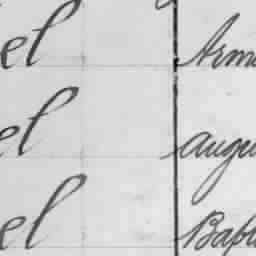 el Arm
el augu
el Bapt